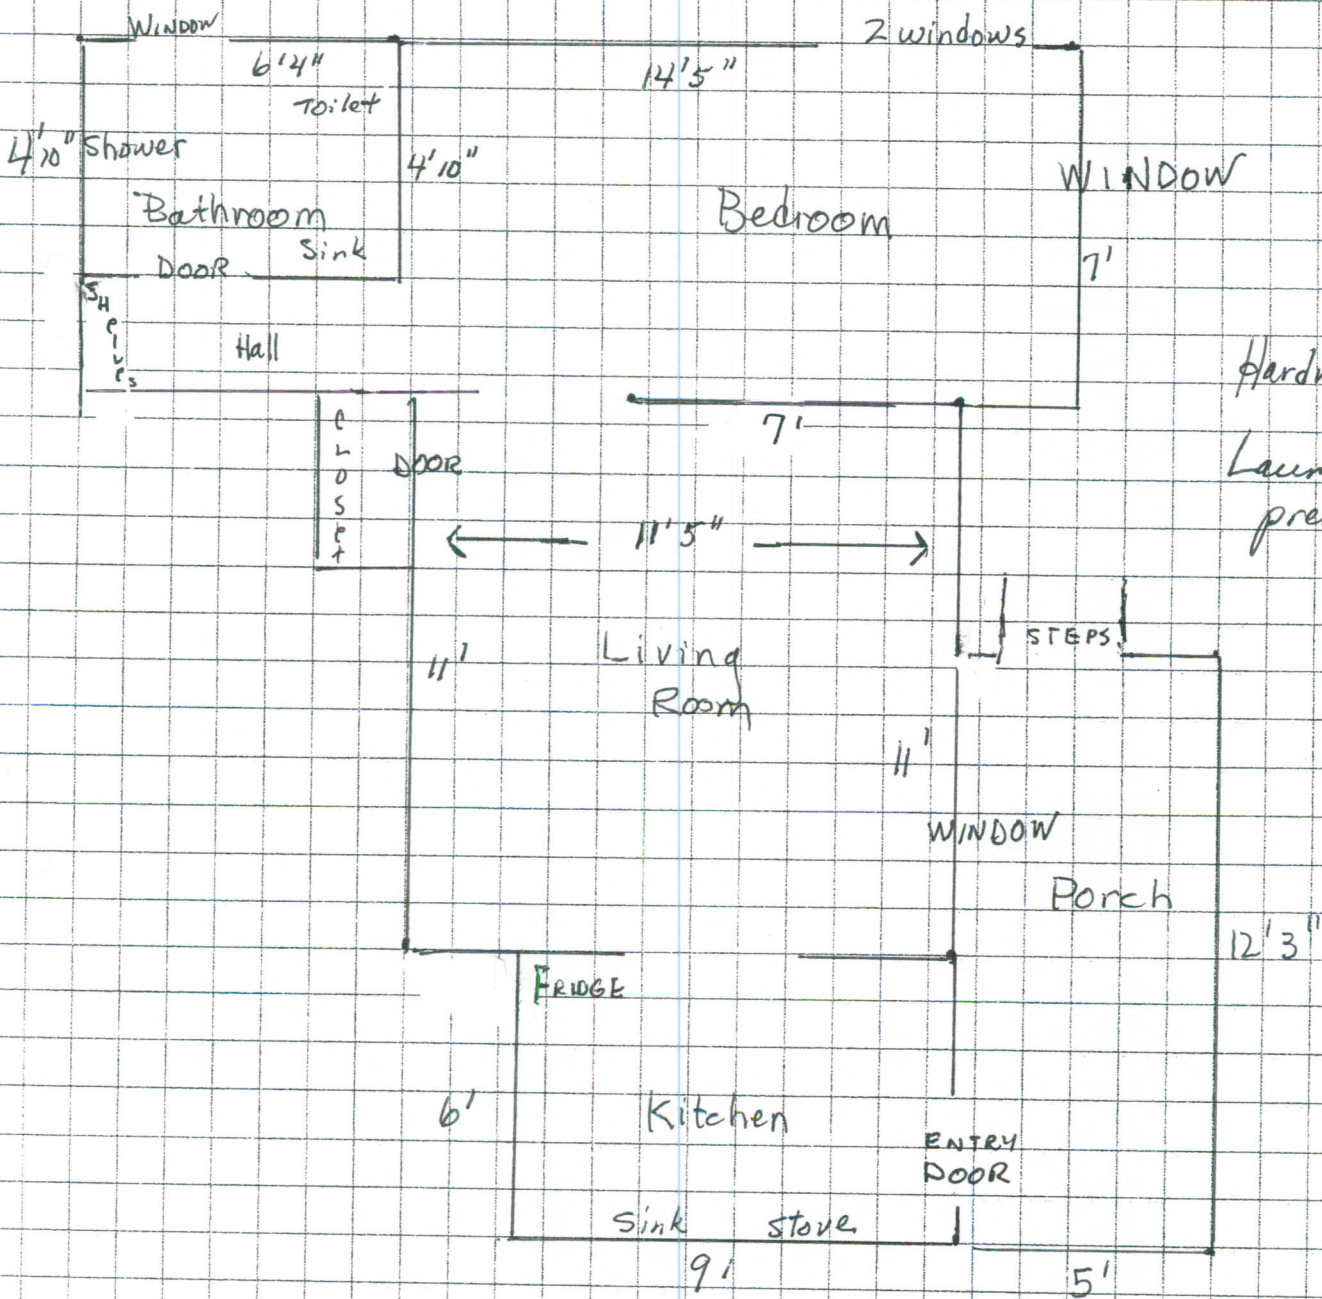 WINDOW
2 windows
6'4"
14'5"
Toilet
4'10"
Shower
4'10"
WINDOW
Bathroom
Bedroom
Sink
DOOR
7'
SHelves
Hall
Hardw
7'
CLOSet
DOOR
Laun
pre
11'5"
STEPS
Living
Room
11'
11'
WINDOW
Porch
12'3"
FRIDGE
6'
Kitchen
ENTRY
DOOR
Sink
Stove
9'
5'